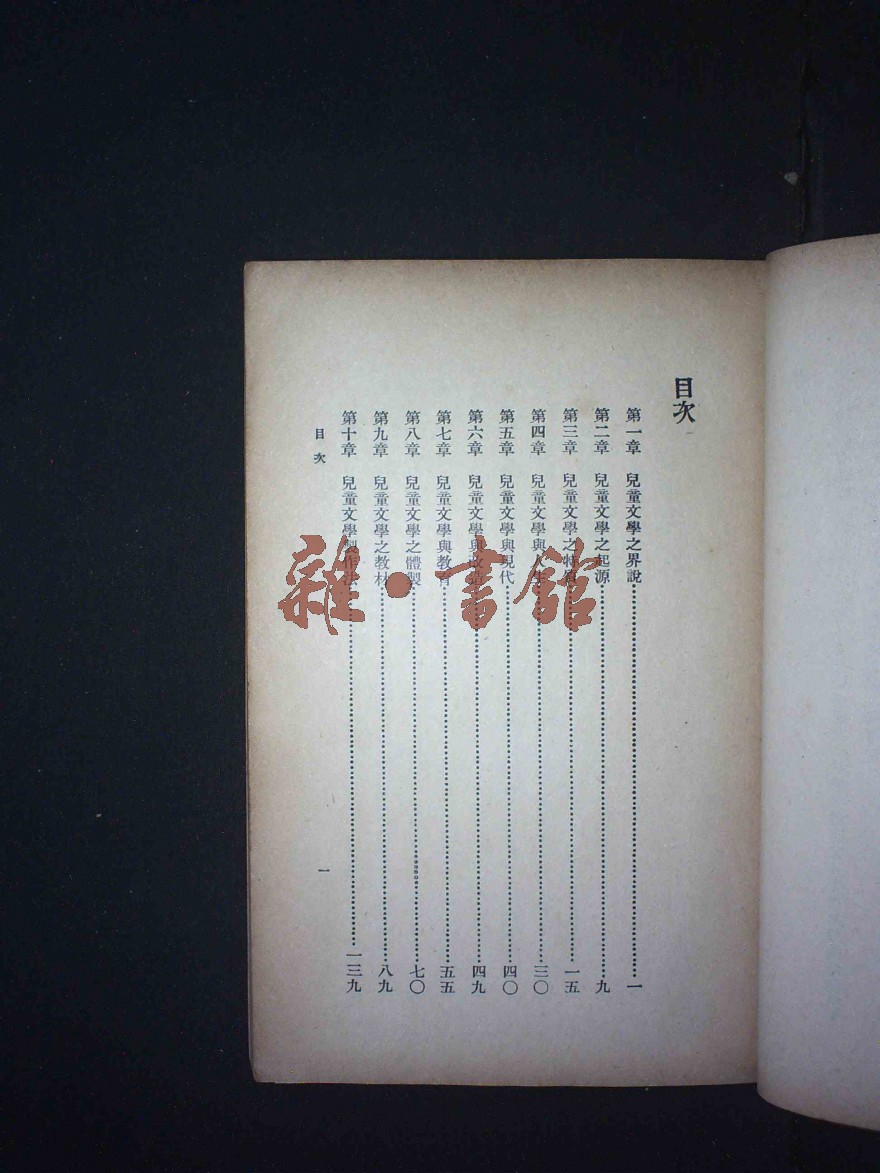 目次
第一章　兒童文學之界說……一
第二章　兒童文學之起源……九
第三章　兒童文學之特質……一五
第四章　兒童文學與人生……三〇
第五章　兒童文學與現代……四〇
第六章　兒童文學與改造……四九
第七章　兒童文學與教育……五五
第八章　兒童文學之體製……七〇
第九章　兒童文學之教材……八九
第十章　兒童文學製作法……一三九
目次
一
雜·書館